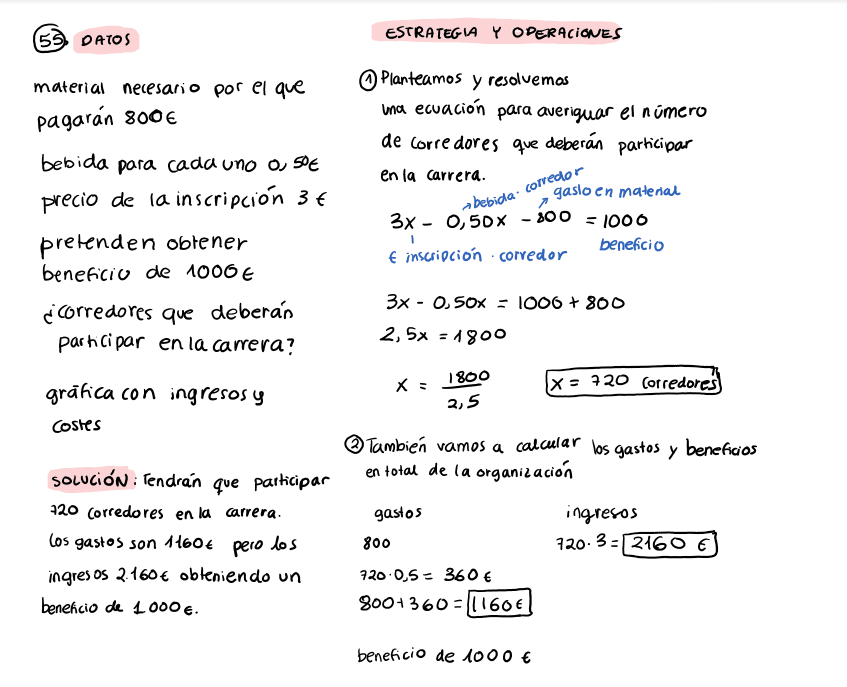 55. DATOS
material necesario por el que
pagarán 800€
bebida para cada uno 0,50€
precio de la inscripción 3 €
pretenden obtener
beneficio de 1000€
¿corredores que deberán
participar en la carrera?
gráfica con ingresos y
costes
SOLUCIÓN: Tendrán que participar
720 corredores en la carrera.
los gastos son 1160€ pero los
ingresos 2.160€ obteniendo un
beneficio de 1000€.
ESTRATEGIA Y OPERACIONES
① Planteamos y resolvemos
una ecuación para averiguar el número
de corredores que deberán participar
en la carrera.
bebida · corredor
gasto en material
3x - 0,50x - 800 = 1000
€ inscripción · corredor
beneficio
3x - 0,50x = 1000 + 800
2,5x = 1800
x = 1800 / 2,5
x = 720 corredores
② También vamos a calcular los gastos y beneficios
en total de la organización
gastos
800
720·0,5 = 360 €
800+360 = 1160€
ingresos
720·3 = 2160 €
beneficio de 1000 €